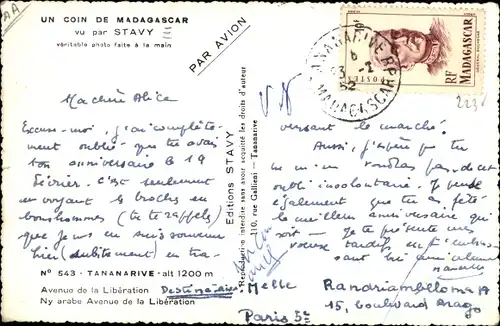 UN COIN DE MADAGASCAR
vu par STAVY
véritable photo faite à la main
PAR AVION
TANANARIVE RP
MADAGASCAR
52
POSTES
RF MADAGASCAR
2236
Ma chère Alice
Excuse-moi, j'ai complète-
ment oublié que tu avais
ton anniversaire le 19
Février. C'est seulement
en voyant le broches en
bonshommes (te te rappels)
que je m'en suis souvenue
hier (subitement) en tra-
versant le marché.
Aussi, j'espère que tu
ne m'en voudras pas de cet
oubli involontaire. Je pense
également que tu as fêté
le meilleur anniversaire qui
soit - Je te présente mes
voeux tardifs en t'embras-
sant bien
Editions STAVY
110, rue Gallieni - Tananarive
Reproduction interdite sans avoir acquitté les droits d'auteur
N° 543 - TANANARIVE - alt 1200 m
Avenue de la Libération
Ny arabe Avenue de la Libération
Destinataire:
Melle Randriambeloma
15, boulevard Arago
Paris 5e